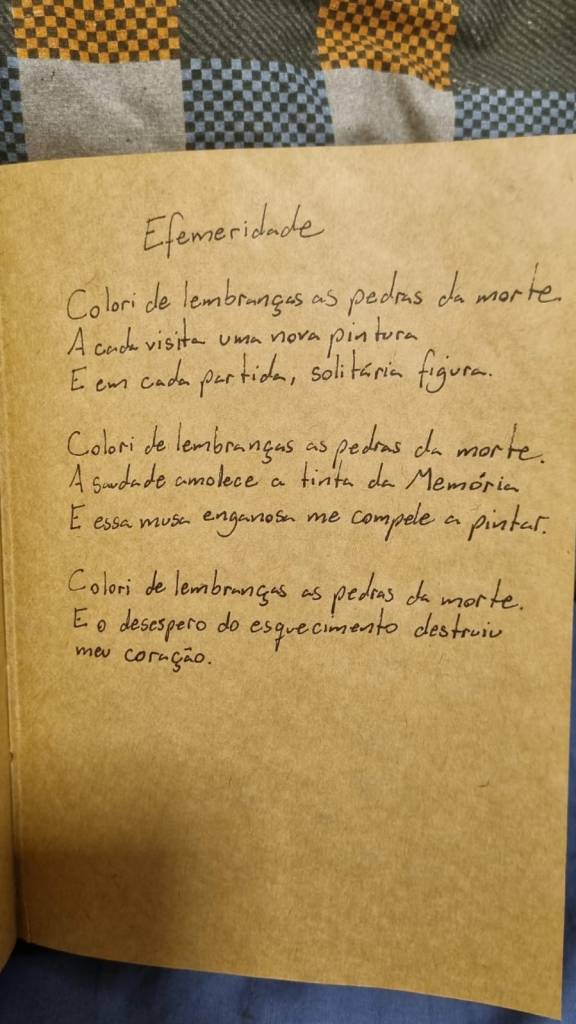 Efemeridade
Colori de lembranças as pedras da morte.
A cada visita uma nova pintura
E em cada partida, solitária figura.
Colori de lembranças as pedras da morte.
A saudade amolece a tinta da Memória
E essa musa enganosa me compele a pintar.
Colori de lembranças as pedras da morte.
E o desespero do esquecimento destruiu
meu coração.